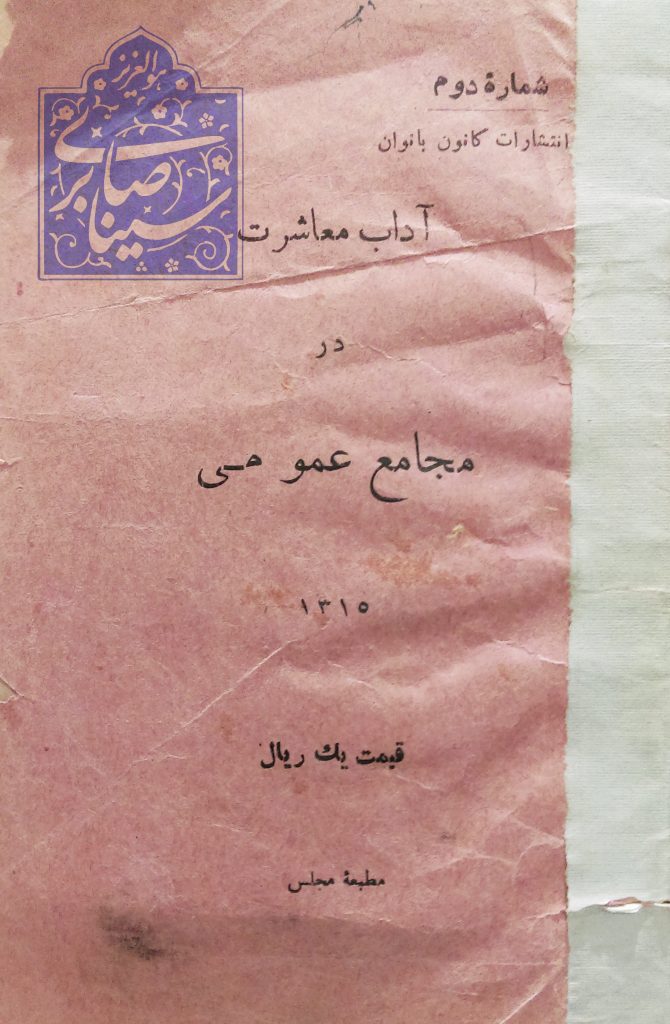 هوالعزیز
سینا صابری
شمارهٔ دوم
انتشارات کانون بانوان
آداب معاشرت
در
مجامع عمومی
۱۳۱۵
قیمت یك ریال
مطبعهٔ مجلس